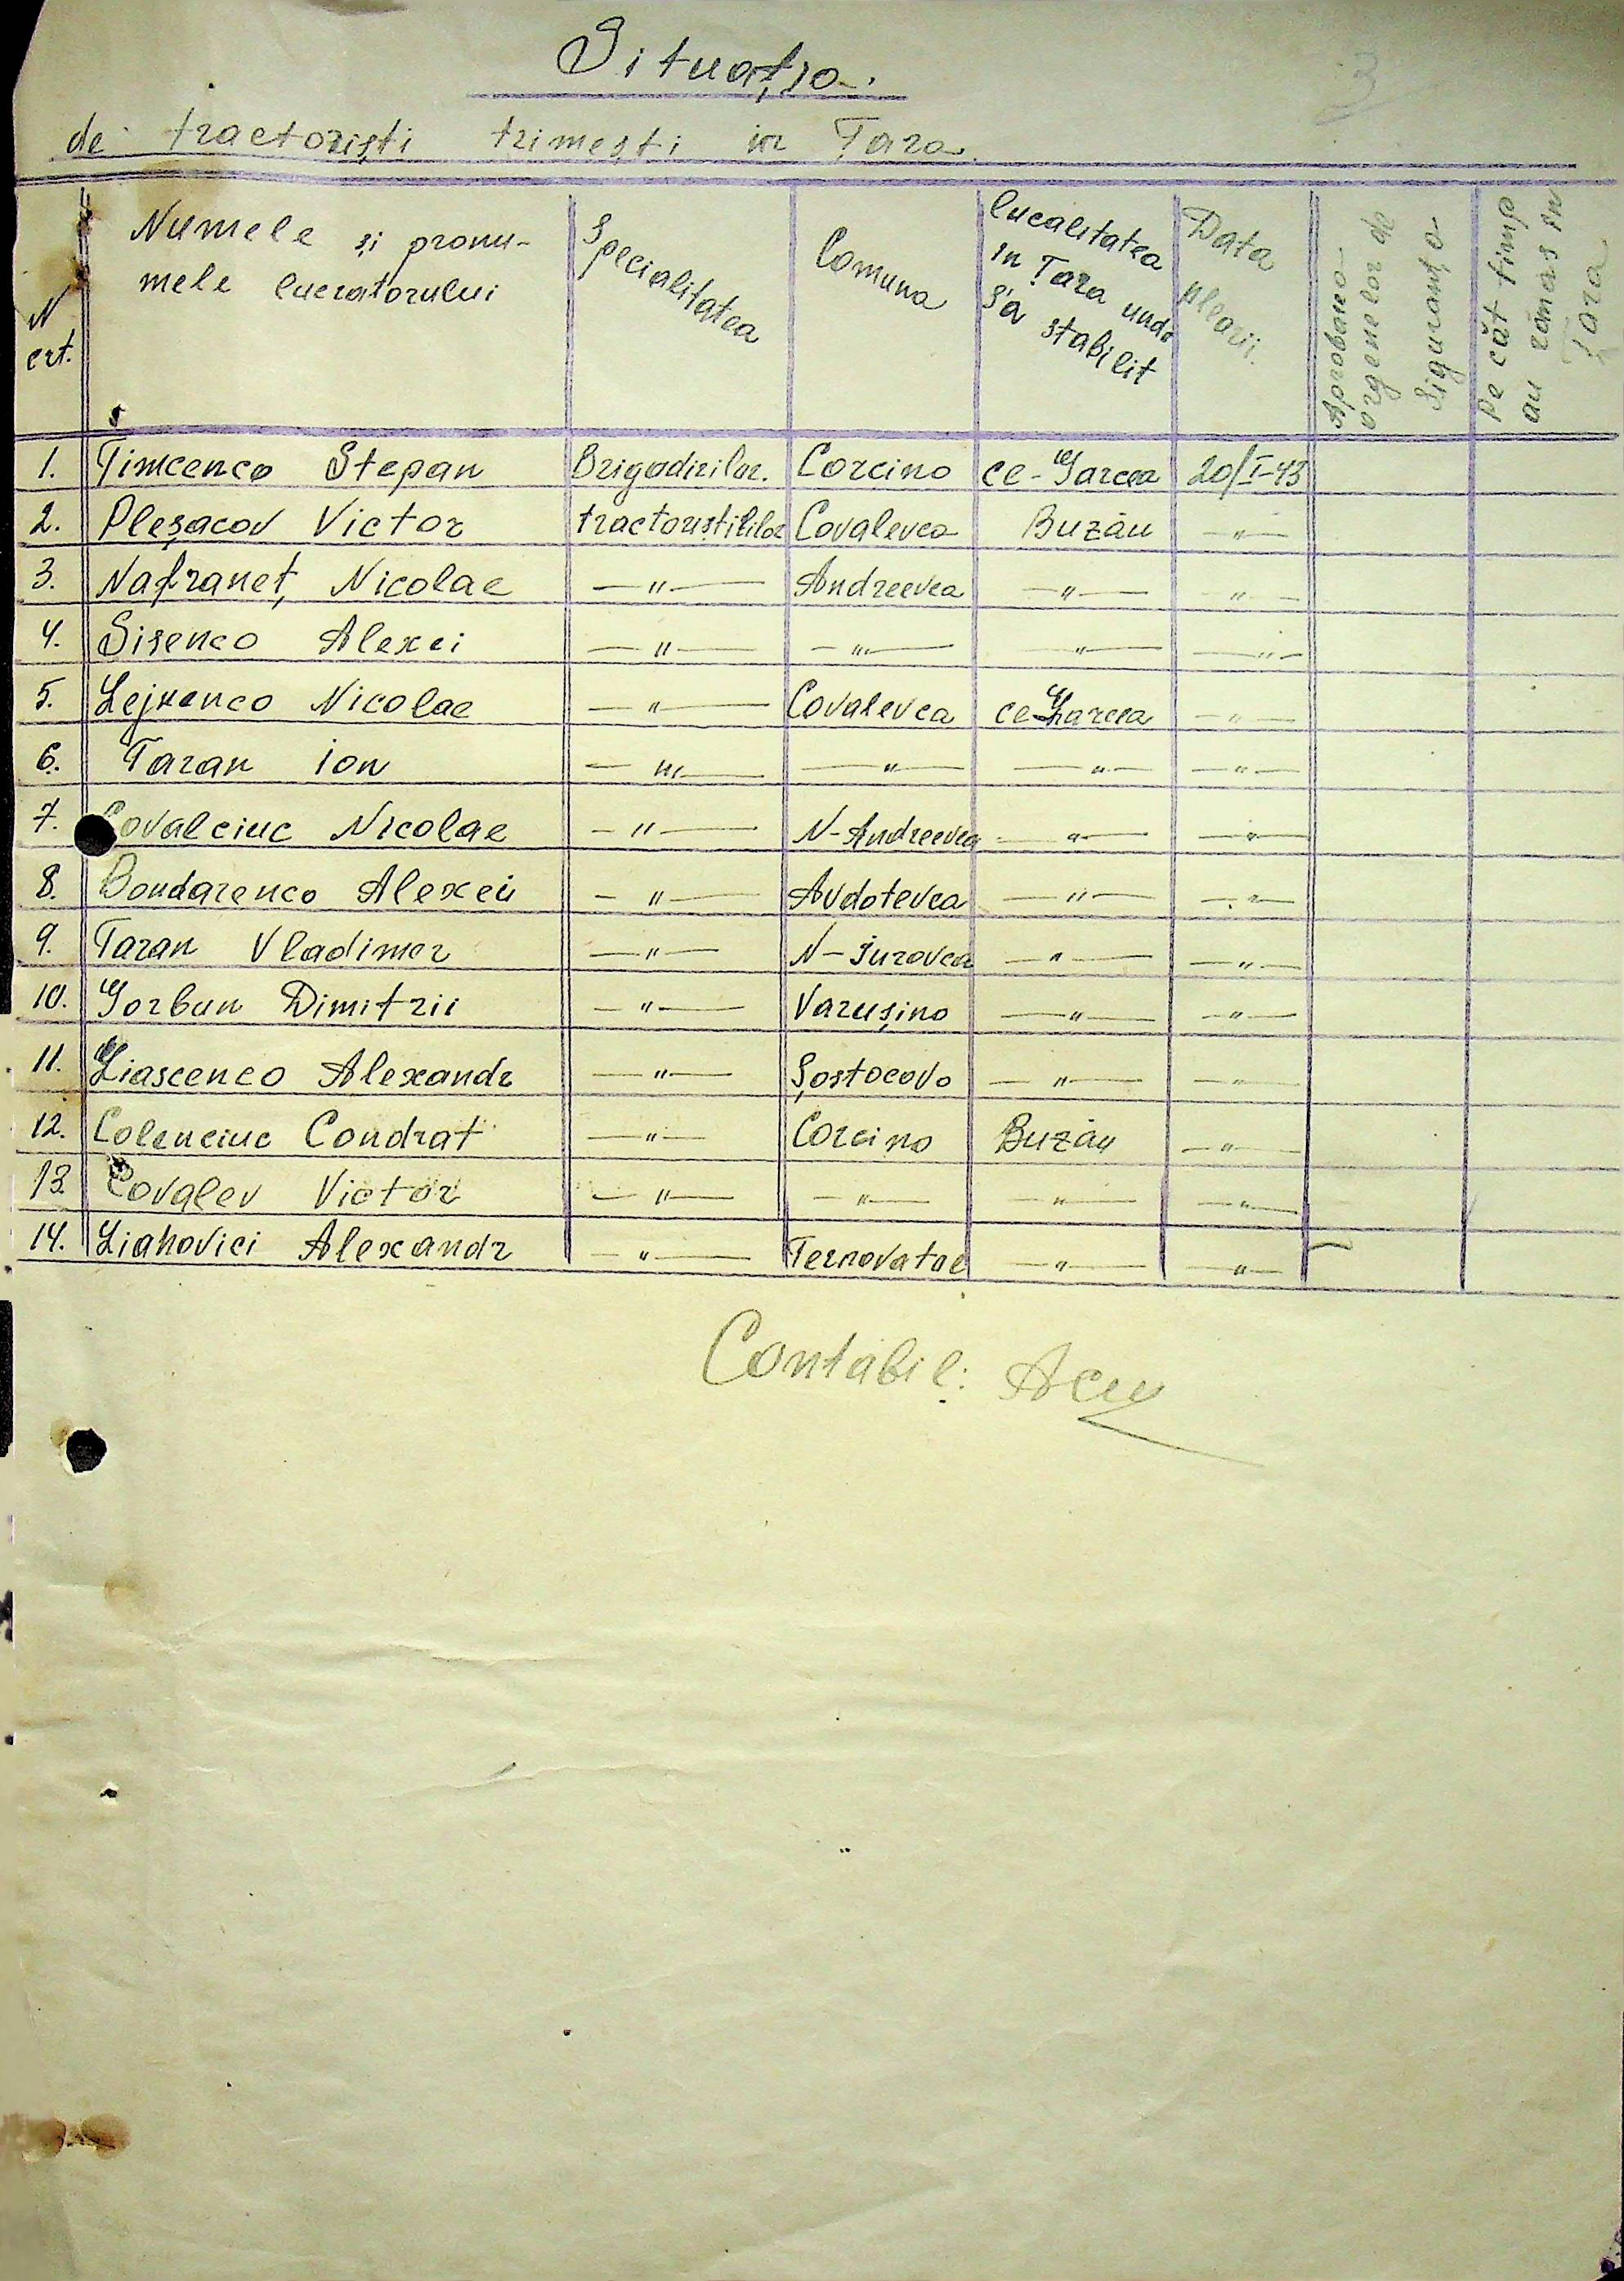 Situația.
de tractoriști trimești in Țara.
N crt. | Numele și pronumele lucratorului | Specialitatea | Comuna | lucalitatea in Țara unde s'a stabilit | Data plecarii. | Aprobarea orgenelor de Siguranța | Pe cât timp au rămas în Țara
1. Timcenco Stepan | Brigadirilor. | Corcino | ce-Garcea | 20/I-43
2. Pleșacov Victor | tractoriștililor | Covalevca | Buzău | —"—
3. Nafraneț Nicolae | —"— | Andreevca | —"— | —"—
4. Sisenco Alexei | —"— | —"— | —"— | —"—
5. Lejnenco Nicolae | —"— | Covalevca | ce Garcea | —"—
6. Taran Ion | —"— | —"— | —"— | —"—
7. Covalciuc Nicolae | —"— | N-Andreevca | —"— | —"—
8. Bondarenco Alexei | —"— | Avdotevca | —"— | —"—
9. Taran Vladimer | —"— | N-Iurovca | —"— | —"—
10. Gorban Dimitrii | —"— | Varușino | —"— | —"—
11. Liascenco Alexandr | —"— | Șostocovo | —"— | —"—
12. Colenciuc Condrat | —"— | Corcino | Buzău | —"—
13. Covalev Victor | —"— | —"— | —"— | —"—
14. Liahovici Alexandr | —"— | Ternovatoe | —"— | —"—
Contabil: